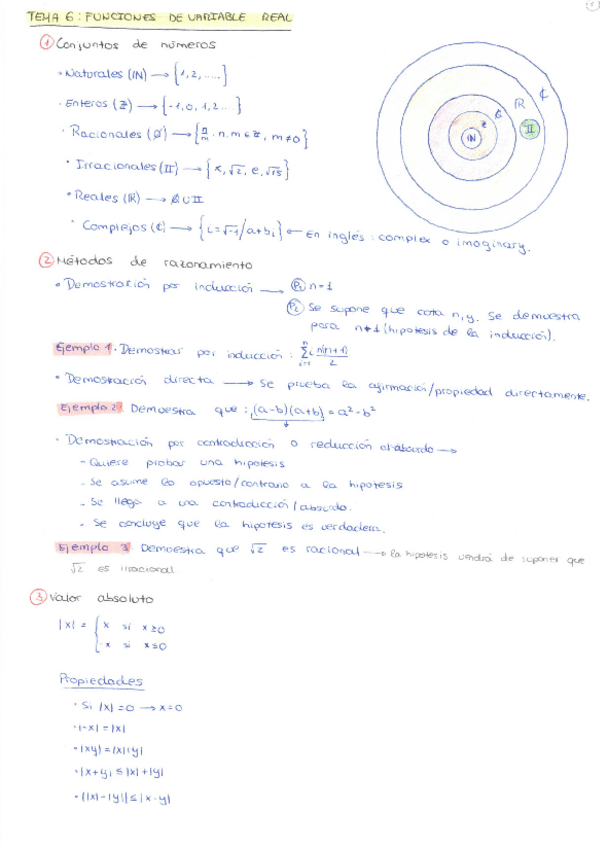 TEMA 6: FUNCIONES DE VARIABLE REAL
① Conjuntos de números
• Naturales (ℕ) → {1, 2, .....}
• Enteros (ℤ) → {-1, 0, 1, 2 ...}
• Racionales (ℚ) → {n/m · n, m ∈ ℤ, m ≠ 0}
• Irracionales (𝕀) → {π, √2, e, √15}
• Reales (ℝ) → ℚ ∪ 𝕀
• Complejos (ℂ) → {i = √-1 / a+bi} ← En inglés: complex o imaginary.
ℕ ℤ ℚ ℝ 𝕀 ℂ
② Métodos de razonamiento
• Demostración por inducción → P₁ n = 1
P₂ Se supone que n, y. Se demuestra
para n+1 (hipotesis de la inducción).
Ejemplo 1. Demostrar por inducción: ∑ i=1 n i n(n+1)/2
• Demostración directa → Se prueba la afirmación/propiedad directamente.
Ejemplo 2 Demuestra que: (a-b)(a+b) = a² - b²
• Demostración por contradicción o reducción al absurdo →
- Quiere probar una hipotesis
- Se asume lo opuesto/contrario a la hipotesis
- Se llega a una contradicción/absurdo.
- Se concluye que la hipotesis es verdadera.
Ejemplo 3 Demuestra que √2 es racional → la hipotesis vendrá de suponer que
√2 es irracional
③ Valor absoluto
|x| = { x si x ≥ 0
-x si x ≤ 0
Propiedades
• Si |x| = 0 → x = 0
• |-x| = |x|
• |xy| = |x| |y|
• |x+y| ≤ |x| + |y|
• ||x| - |y|| ≤ |x - y|